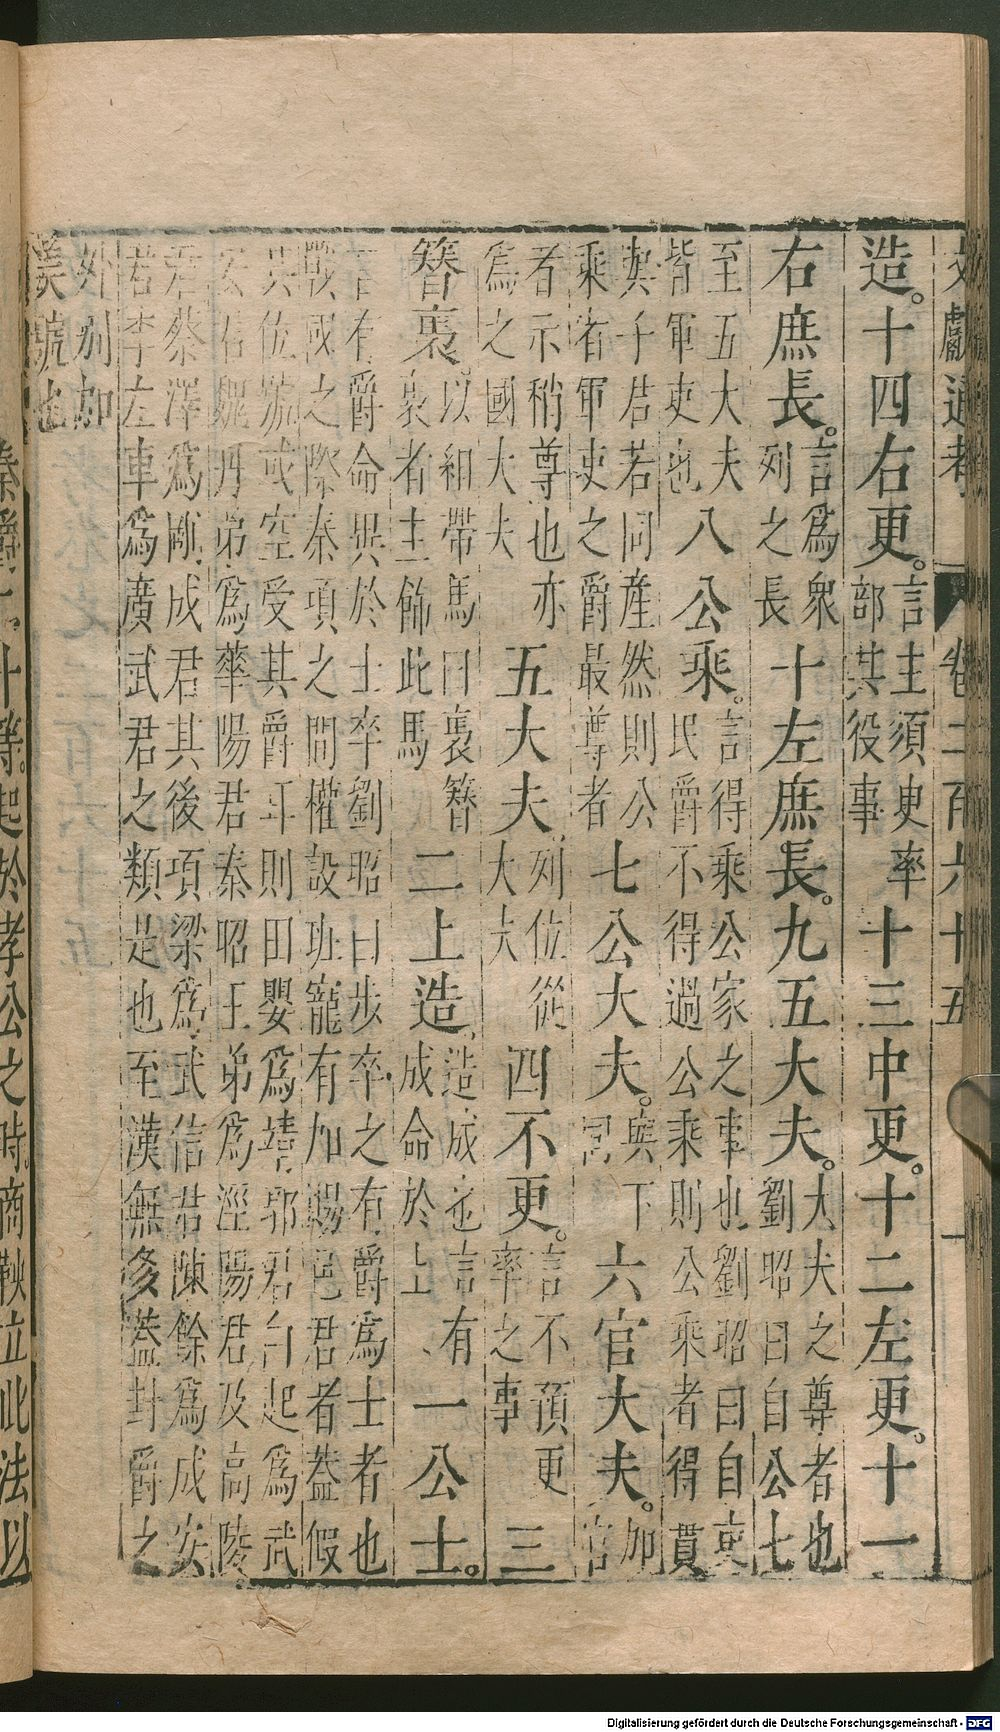 文獻通考 卷二百六十五 一
造。十四右更。言主須吏率部其役事十三中更。十二左更。十一
右庶長。言爲衆列之長十左庶長。九五大夫。大夫之尊者也劉昭曰自公七
至五大夫皆軍吏也八公乘。言得乘公家之車也劉昭曰自吏民爵不得過公乘則公乘者得貰
與子若同產然則公乘者軍吏之爵最尊者七公大夫。與下同六官大夫。加官
者示稍尊也亦爲之國大夫五大夫列位從大夫四不更。言不預更率之事三
簪裹。以組帶馬曰裹簪裹者主飾此馬二上造造成也言有成命於上一公士。
言有爵命異於士卒劉昭曰步卒之有爵爲士者也
戰國之際秦項之間權設班寵有加賜邑君者蓋假
其位號或空受其爵耳則田嬰爲靖郭君白起爲武
安君魏冉弟爲華陽君秦昭王弟爲涇陽君及高陵
君蔡澤爲剛成君其後項梁爲武信君陳餘爲成安
君李左車爲廣武君之類是也至漢無多蓋封爵之
外別加
美號也
秦爵二十等。起於孝公之時。商鞅立此法以
Digitalisierung gefördert durch die Deutsche Forschungsgemeinschaft - DFG